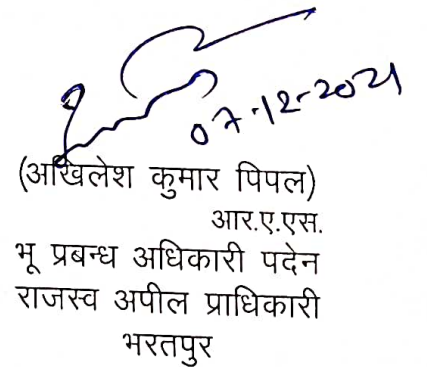 07-12-2021
(अखिलेश कुमार पिपल)
आर.ए.एस.
भू प्रबन्ध अधिकारी पदेन
राजस्व अपील प्राधिकारी
भरतपुर